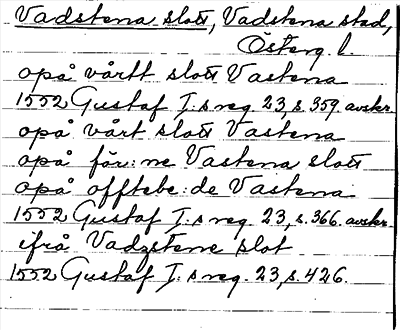 Vadstena slott, Vadstena stad,
Österg. l.
opå vårtt slott Vastena
1552 Gustaf I:s reg. 23, s. 359. avskr.
opå vårt slott Vastena
opåför:ne Vastena slott
opå offtebe:de Vastena
1552 Gustaf I:s reg. 23, s. 366. avskr.
ifrå Vadzstene slot
1552 Gustaf I:s reg. 23, s. 426.